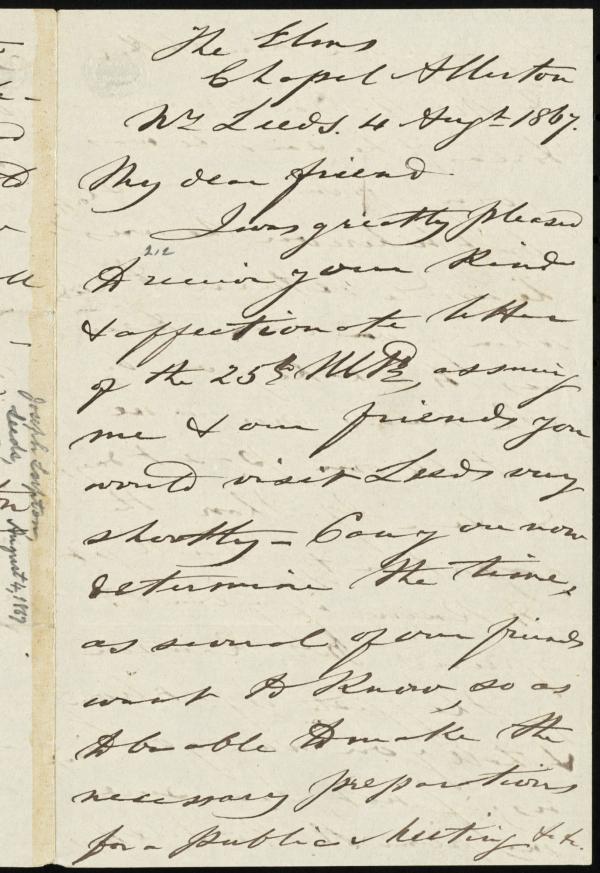 The Elms
Chapel Allerton
Nr Leeds. 4 Augt 1867.
My dear friend
I was greatly pleased
212
to receive your kind
& affectionate letter
of the 25th Ulto, assuring
me & our friends you
would visit Leeds very
shortly - Can you now
determine the time,
as several of our friends
want to know, so as
to be able to make the
necessary preparations
for a public Meeting &c.
Joseph Lupton
Leeds,
August 4, 1867